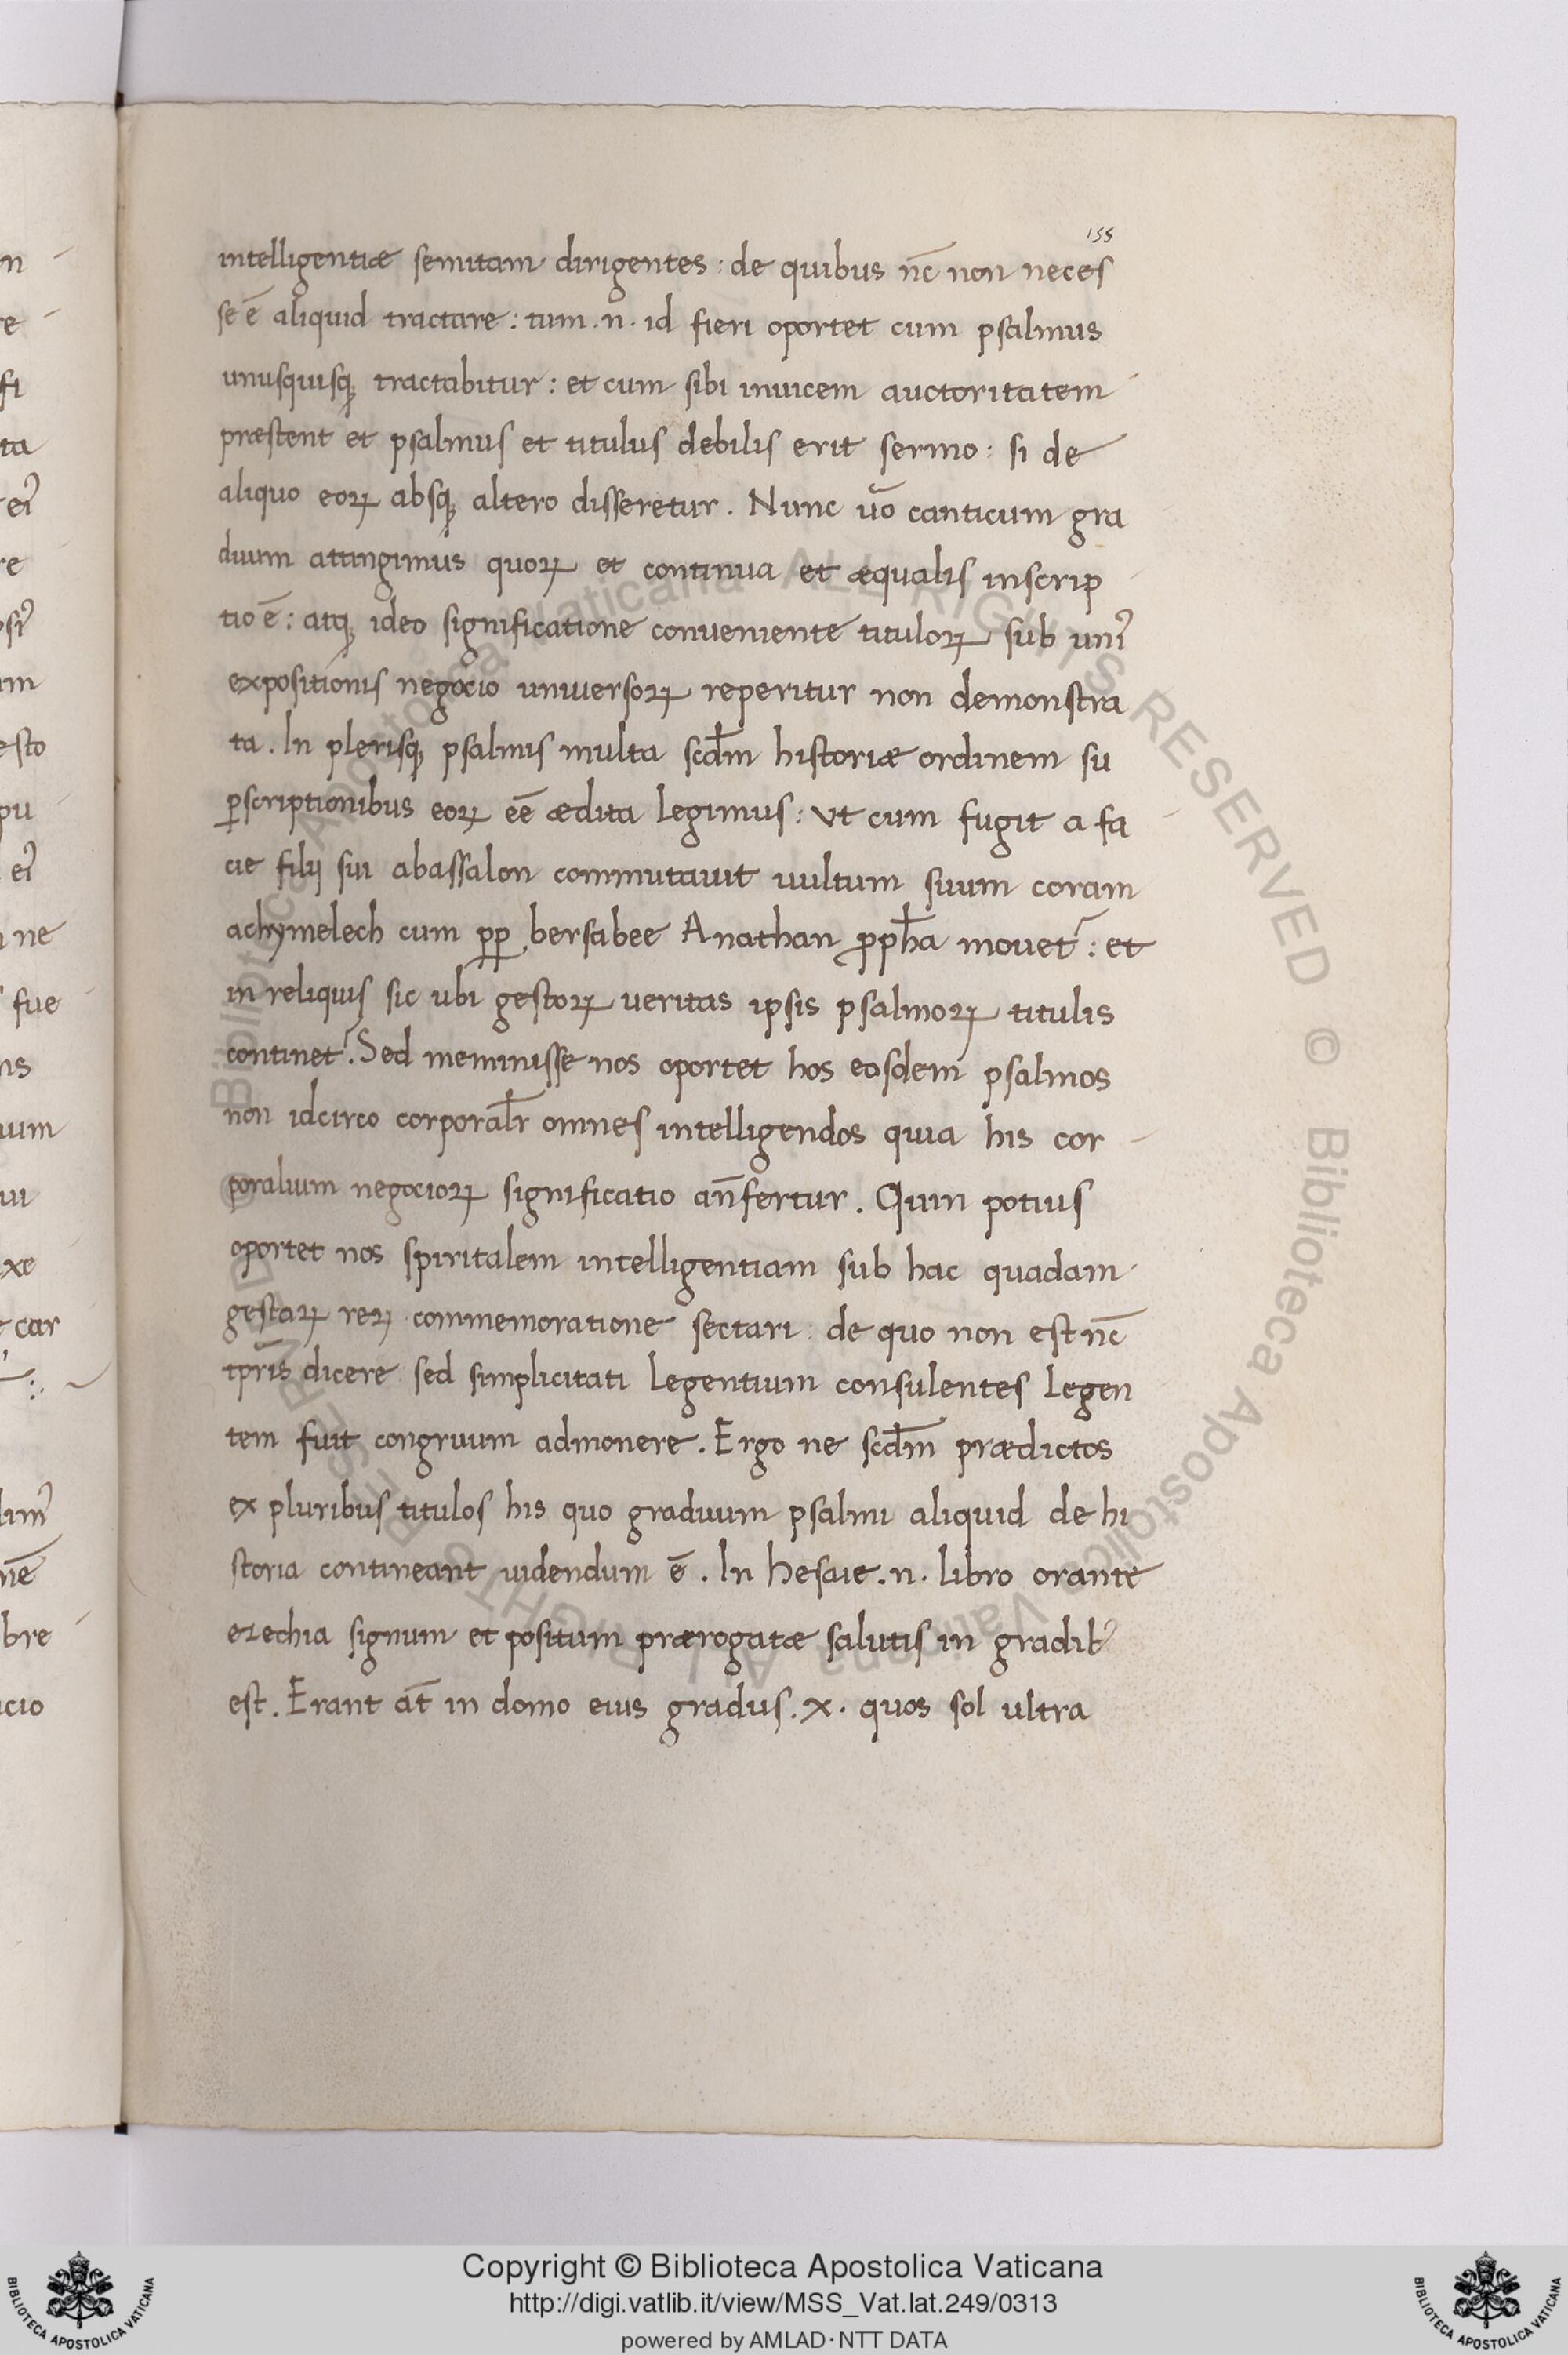 155
intelligentiæ semitam dirigentes: de quibus nc̄ non neces
se ē aliquid tractare: tum .n. id fieri oportet cum psalmus
unusquisq; tractabitur: et cum sibi inuicem auctoritatem
præstent et psalmus et titulus debilis erit sermo: si de
aliquo eoꝝ absq; altero disseretur. Nunc uo canticum gra
duum attingimus quoꝝ et continua et æqualis inscrip
tio ē: atq; ideo significatione conueniente tituloꝝ sub uni
expositionis negocio uniuersoꝝ reperitur non demonstra
ta. In plerisq; psalmis multa scd̄m historiæ ordinem su
ꝑscriptionibus eoꝝ eē ædita legimus: ut cum fugit a fa
cie filij sui abassalon commutauit uultum suum coram
achymelech cum pp bersabee Anathan ppħa mouet: et
in reliquis sic ubi gestoꝝ ueritas ipsis psalmoꝝ titulis
continet. Sed meminisse nos oportet hos eosdem psalmos
non idcirco corporalr̄ omnes intelligendos quia his cor
poralium negocioꝝ significatio an̄fertur. Quin potius
oportet nos spiritalem intelligentiam sub hac quadam
gestaꝝ reꝝ commemoratione sectari: de quo non est nc̄
tpr̄is dicere sed simplicitati legentium consulentes legen
tem fuit congruum admonere. Ergo ne scd̄m prædictos
ex pluribus titulos his quo graduum psalmi aliquid de hi
storia contineant uidendum ē. In hesaie .n. libro orante
ezechia signum et positum prærogatæ salutis in gradib;
est. Erant at̄ in domo eius gradus .x. quos sol ultra
Copyright © Biblioteca Apostolica Vaticana
http://digi.vatlib.it/view/MSS_Vat.lat.249/0313
powered by AMLAD·NTT DATA